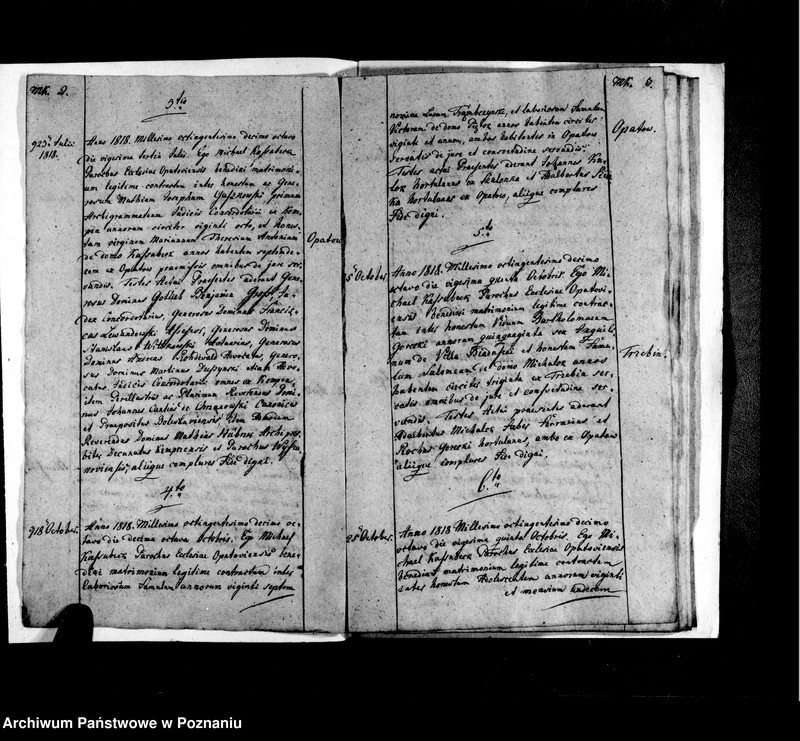 Mk. 2.
3tio
d 23. Julii
1818.
Anno 1818. Millesimo octingentesimo decimo octavo
die vigesima tertia Julii. Ego Michael
Parochus Ecclesiae Opatoviensis benedixi matrimoni-
um legitime contractum inter honestum ac Gene-
rosum Mathiam Josephum primum
Archigrammateum Judicii Concordatorii ex Kem-
pia annorum circiter viginti octo, et hones-
tam virginem Mariannam Theresiam Antoninam
de domo annos habentem septende-
cem ex Opatow praemissis omnibus de jure ser-
vandis. Testes Actui Praesentes aderant Gene-
rosus Dominus Gottlieb Benjamin Ju-
dex Concordatorius, Generosus Dominus Francis-
cus Lewandowski Generosus Dominus
Stanislaus Wittkowski Notarius, Generosus
Dominus Advocatus, Genero-
sus Dominus Martinus Advo-
catus Judicii Concordatorii omnes ex Kempia,
item Perillustris ac Reverendus Domi-
nus Johannes Cantius de Chrzanowski Canonicus
et Praepositus Boleslaviensis, item
Reverendus Dominus Mathias Hübner Archipres-
biter Decanatus Kempnensis et Parochus
aliique complures Fide digni.
Opatow
4to
d 18 Octobr.
Anno 1818. Millesimo octingentesimo decimo oc-
tavo die decima octava Octobris. Ego Michael
Parochus Ecclesiae Opatoviensis bene-
dixi matrimonium legitime contractum inter
laboriosum famulum annorum viginti septem
Mk. 3.
novim Lucam et laboriosam famulam
Victoriam de domo annos habentem circiter
viginti et unum, ambos habitantes in Opatow
servatis de jure et consuetudine servandis.
Testes actui Praesentes aderant Johannes
hortulanus ex et Adalbertus
hortulanus ex Opatow, aliique complures
Fide digni.
Opatow.
5to
25 Octobr.
Anno 1818. Millesimo octingentesimo decimo
octavo die vigesima quinta Octobris. Ego Mi-
chael Parochus Ecclesiae Opatovi-
ensis benedixi matrimonium legitime contrac-
tum inter honestum Viduum Bartholomaeum
Gorecki annorum quinquaginta sex Inquili-
num de Villa et honestam Famu-
lam Salomeam de domo Michalok annos
habentem circiter triginta ex Trzebin ser-
vatis omnibus de jure et consuetudine ser-
vandis. Testes Actui praesentes aderant
Adalbertus Michalok Faber Ferrarius et
Rochus Gorecki hortulanus, ambo ex Opatow
aliique complures Fide digni.
Trzebin.
6to
25 Octobr.
Anno 1818. Millesimo octingentesimo decimo
octavo die vigesima quinta Octobris. Ego Mi-
chael Parochus Ecclesiae Opatoviensis
benedixi matrimonium legitime contractum
inter honestum Adolescentem annorum viginti
et mensium undecem
Archiwum Państwowe w Poznaniu